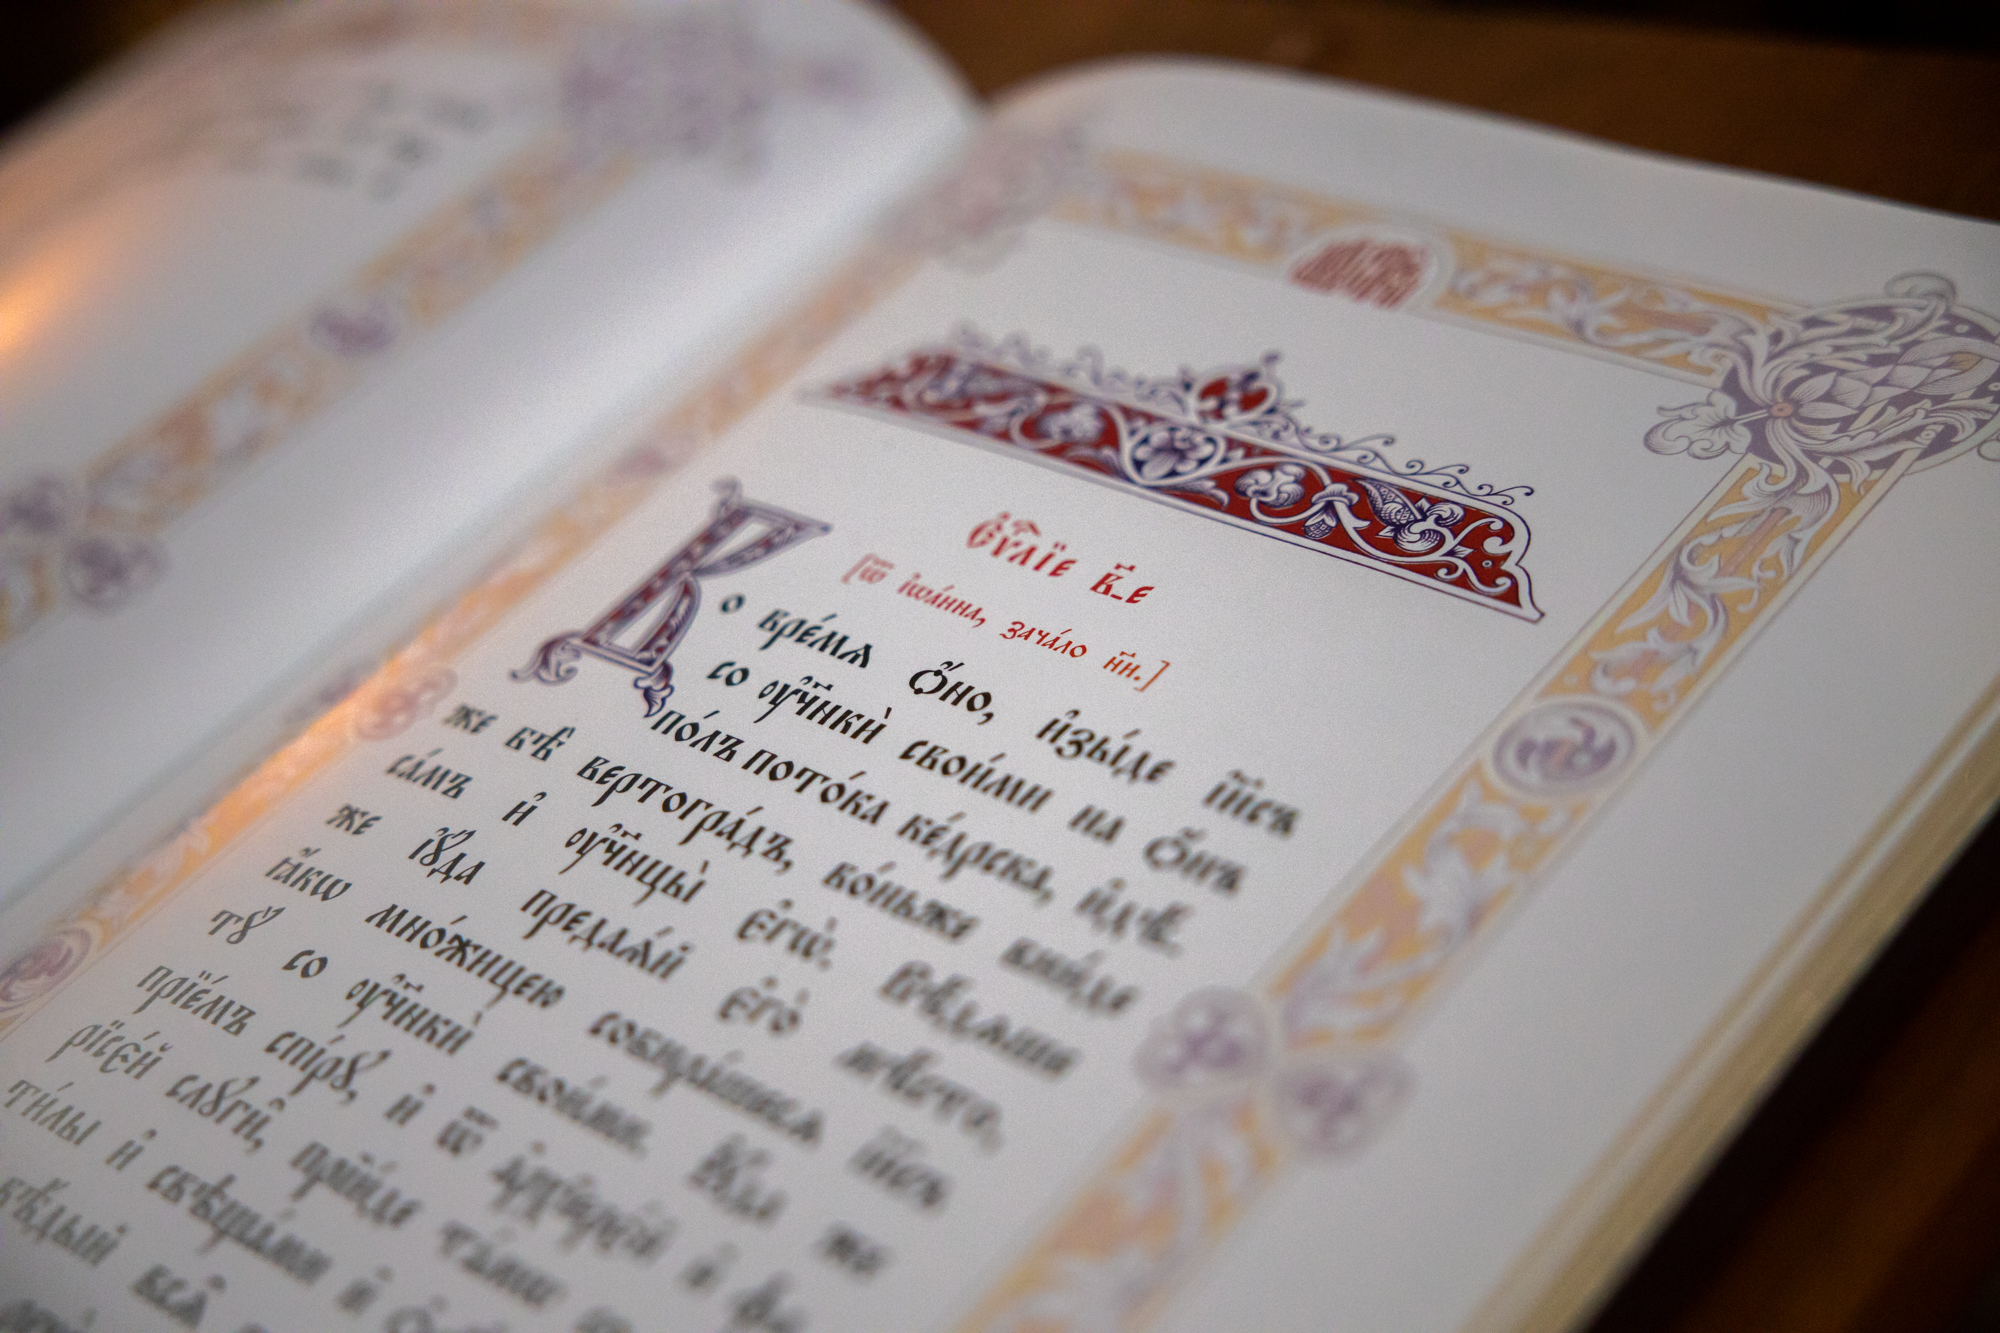 Є҆ѵⷢ҇лїе в҃_е
[ѿ і҆ѡа́нна, зача́ло н҃н.]
Во вре́мѧ ѻ҆́но, и҆зы́де і҆и҃съ
со ᲂу҆чн҃кѝ свои́ми на ѻ҆́нъ
по́лъ пото́ка ке́дрска, и҆дѣ́
же бѣ̀ вертогра́дъ, во́ньже вни́де
са́мъ и҆ ᲂу҆чн҃цы̀ є҆гѡ̀. Вѣ́дѧше
же і҆ꙋ́да предаѧ́й є҆го̀ мѣ́сто,
ꙗ҆́кѡ мно́жицею собира́шесѧ і҆и҃съ
тꙋ̀ со ᲂу҆чн҃кѝ свои́ми. І҆ꙋ́да же
прїе́мъ спі́рꙋ, и҆ ѿ а҆рхїере́й и҆ фа
рїсє́й слꙋги̑, прїи́де та́мѡ
ти́лы и҆ свѣща́ми и҆
вѣ́дый всѧ̑